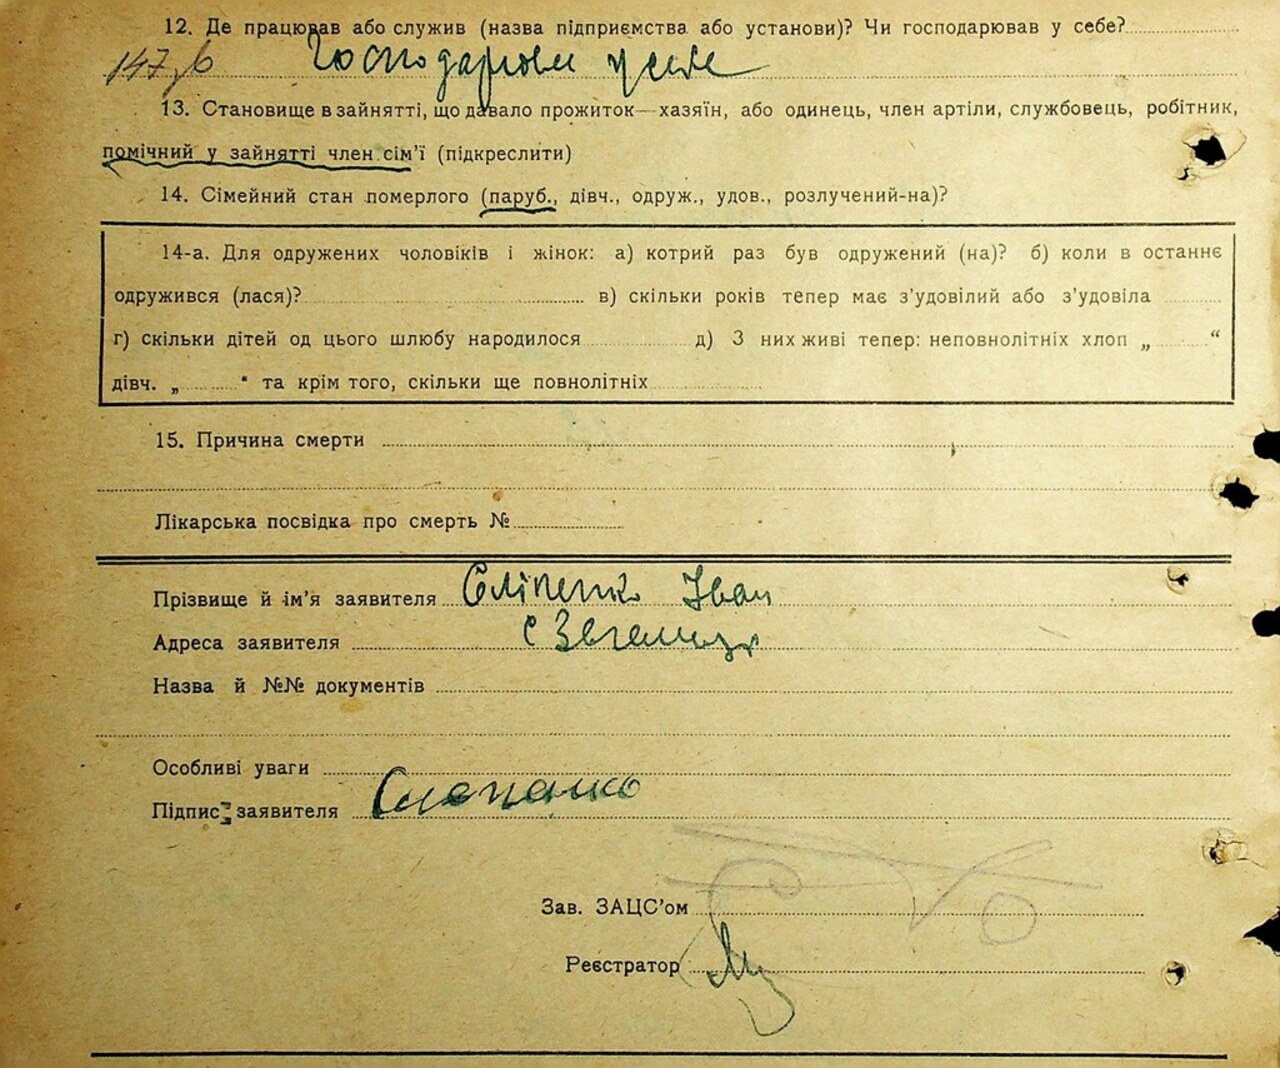 12. Де працював або служив (назва підприємства або установи)? Чи господарював у себе?
147
13. Становище в зайнятті, що давало прожиток—хазяїн, або одинець, член артіли, службовець, робітник,
помічний у зайнятті член сім’ї (підкреслити)
14. Сімейний стан померлого (паруб., дівч., одруж., удов., розлучений-на)?
14-а. Для одружених чоловіків і жінок: а) котрий раз був одружений (на)? б) коли в останнє
одружився (лася)? в) скільки років тепер має з’удовілий або з’удовіла
г) скільки дітей од цього шлюбу народилося д) З них живі тепер: неповнолітніх хлоп „ “
дівч. „ “ та крім того, скільки ще повнолітніх
15. Причина смерти
Лікарська посвідка про смерть №
Прізвище й ім’я заявителя Сліпенко Іван
Адреса заявителя с
Назва й №№ документів
Особливі уваги
Підпис заявителя
Зав. ЗАЦС’ом
Реєстратор